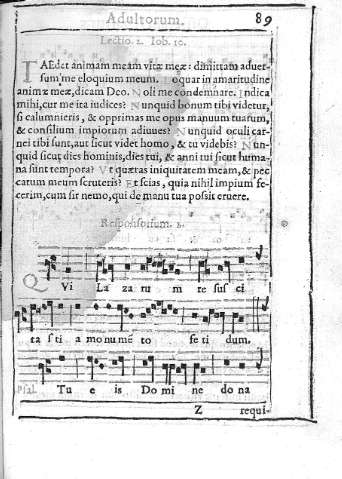 Adultorum. 89
Lectio. 2. Iob. 10.
TAEdet animam meam vitæ meæ: dimittam aduer-
sum me eloquium meum. oquar in amaritudine
animæ meæ, dicam Deo. Noli me condemnare. Indica
mihi, cur me ita iudices? Nunquid bonum tibi videtur,
si calumnieris, & opprimas me opus manuum tuarum,
& consilium impiorum adiuues? Nunquid oculi car-
nei tibi sunt, aut sicut videt homo, & tu videbis? Nun-
quid sicut dies hominis, dies tui, & anni tui sicut huma-
na sunt tempora? Vt quæras iniquitatem meam, & pec
catum meum scruteris? Et scias, quia nihil impium fe-
cerim, cum sit nemo, qui de manu tua possit eruere.
Responsorium. 2.
QVi La za ru m re sus ci
ta s ti a monumẽ to fe ti dum.
Psal. Tu e is Domi ne dona
Z requi-